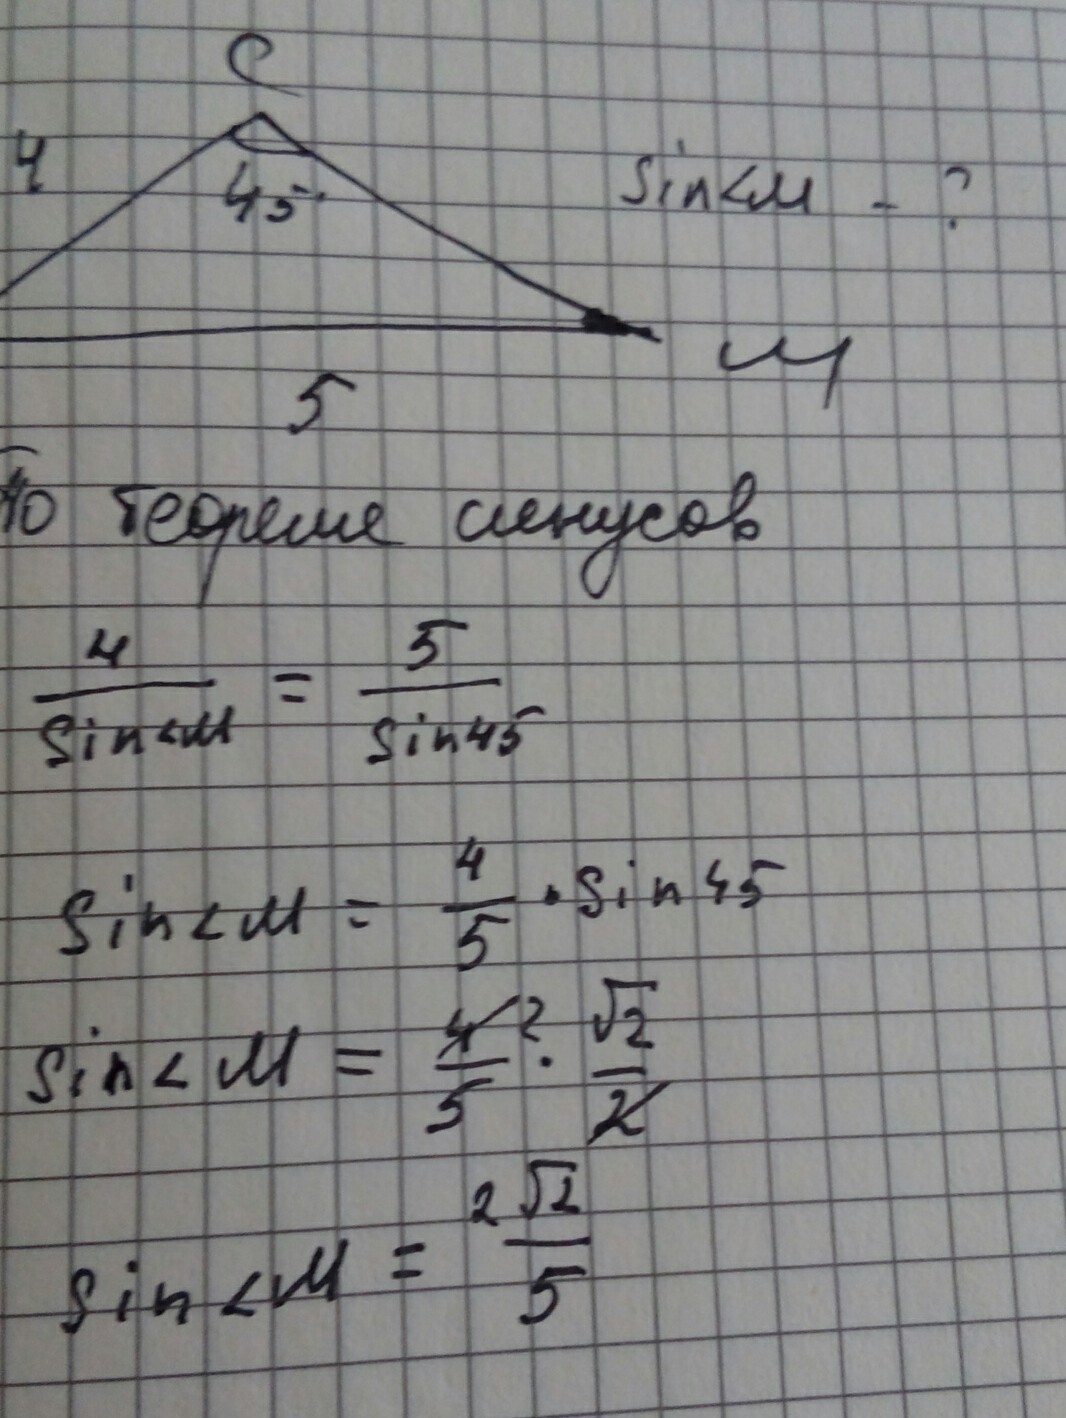 C
4
45°
sin<M - ?
M
5
По теореме синусов
4/sin<M = 5/sin45
sin<M = 4/5 · sin 45
sin<M = 4/5 2 · √2/2
sin<M = 2√2/5